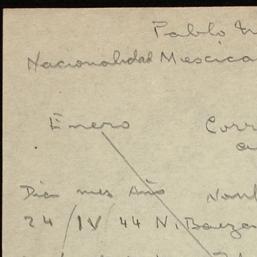 Pablo
Nacionalidad Mexica
Enero Corr
Dia mes Año Nom
24 / IV 44 N. Baeza